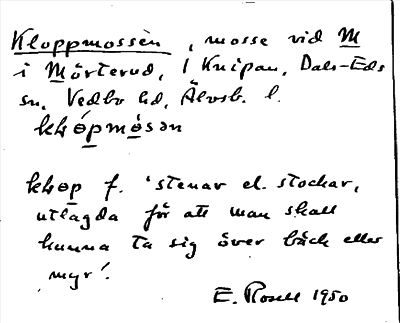 Kloppmossen, mosse vid M
i Mörterud, 1 Knipan, Dals-Eds
sn, Vedbo hd, Älvsb. l.
kłɵpmɵsən
kłɵp f. 'stenar el. stockar,
utlagda för att man skall
kunna ta sig över bäck eller
myr'.
E. Rosell 1950